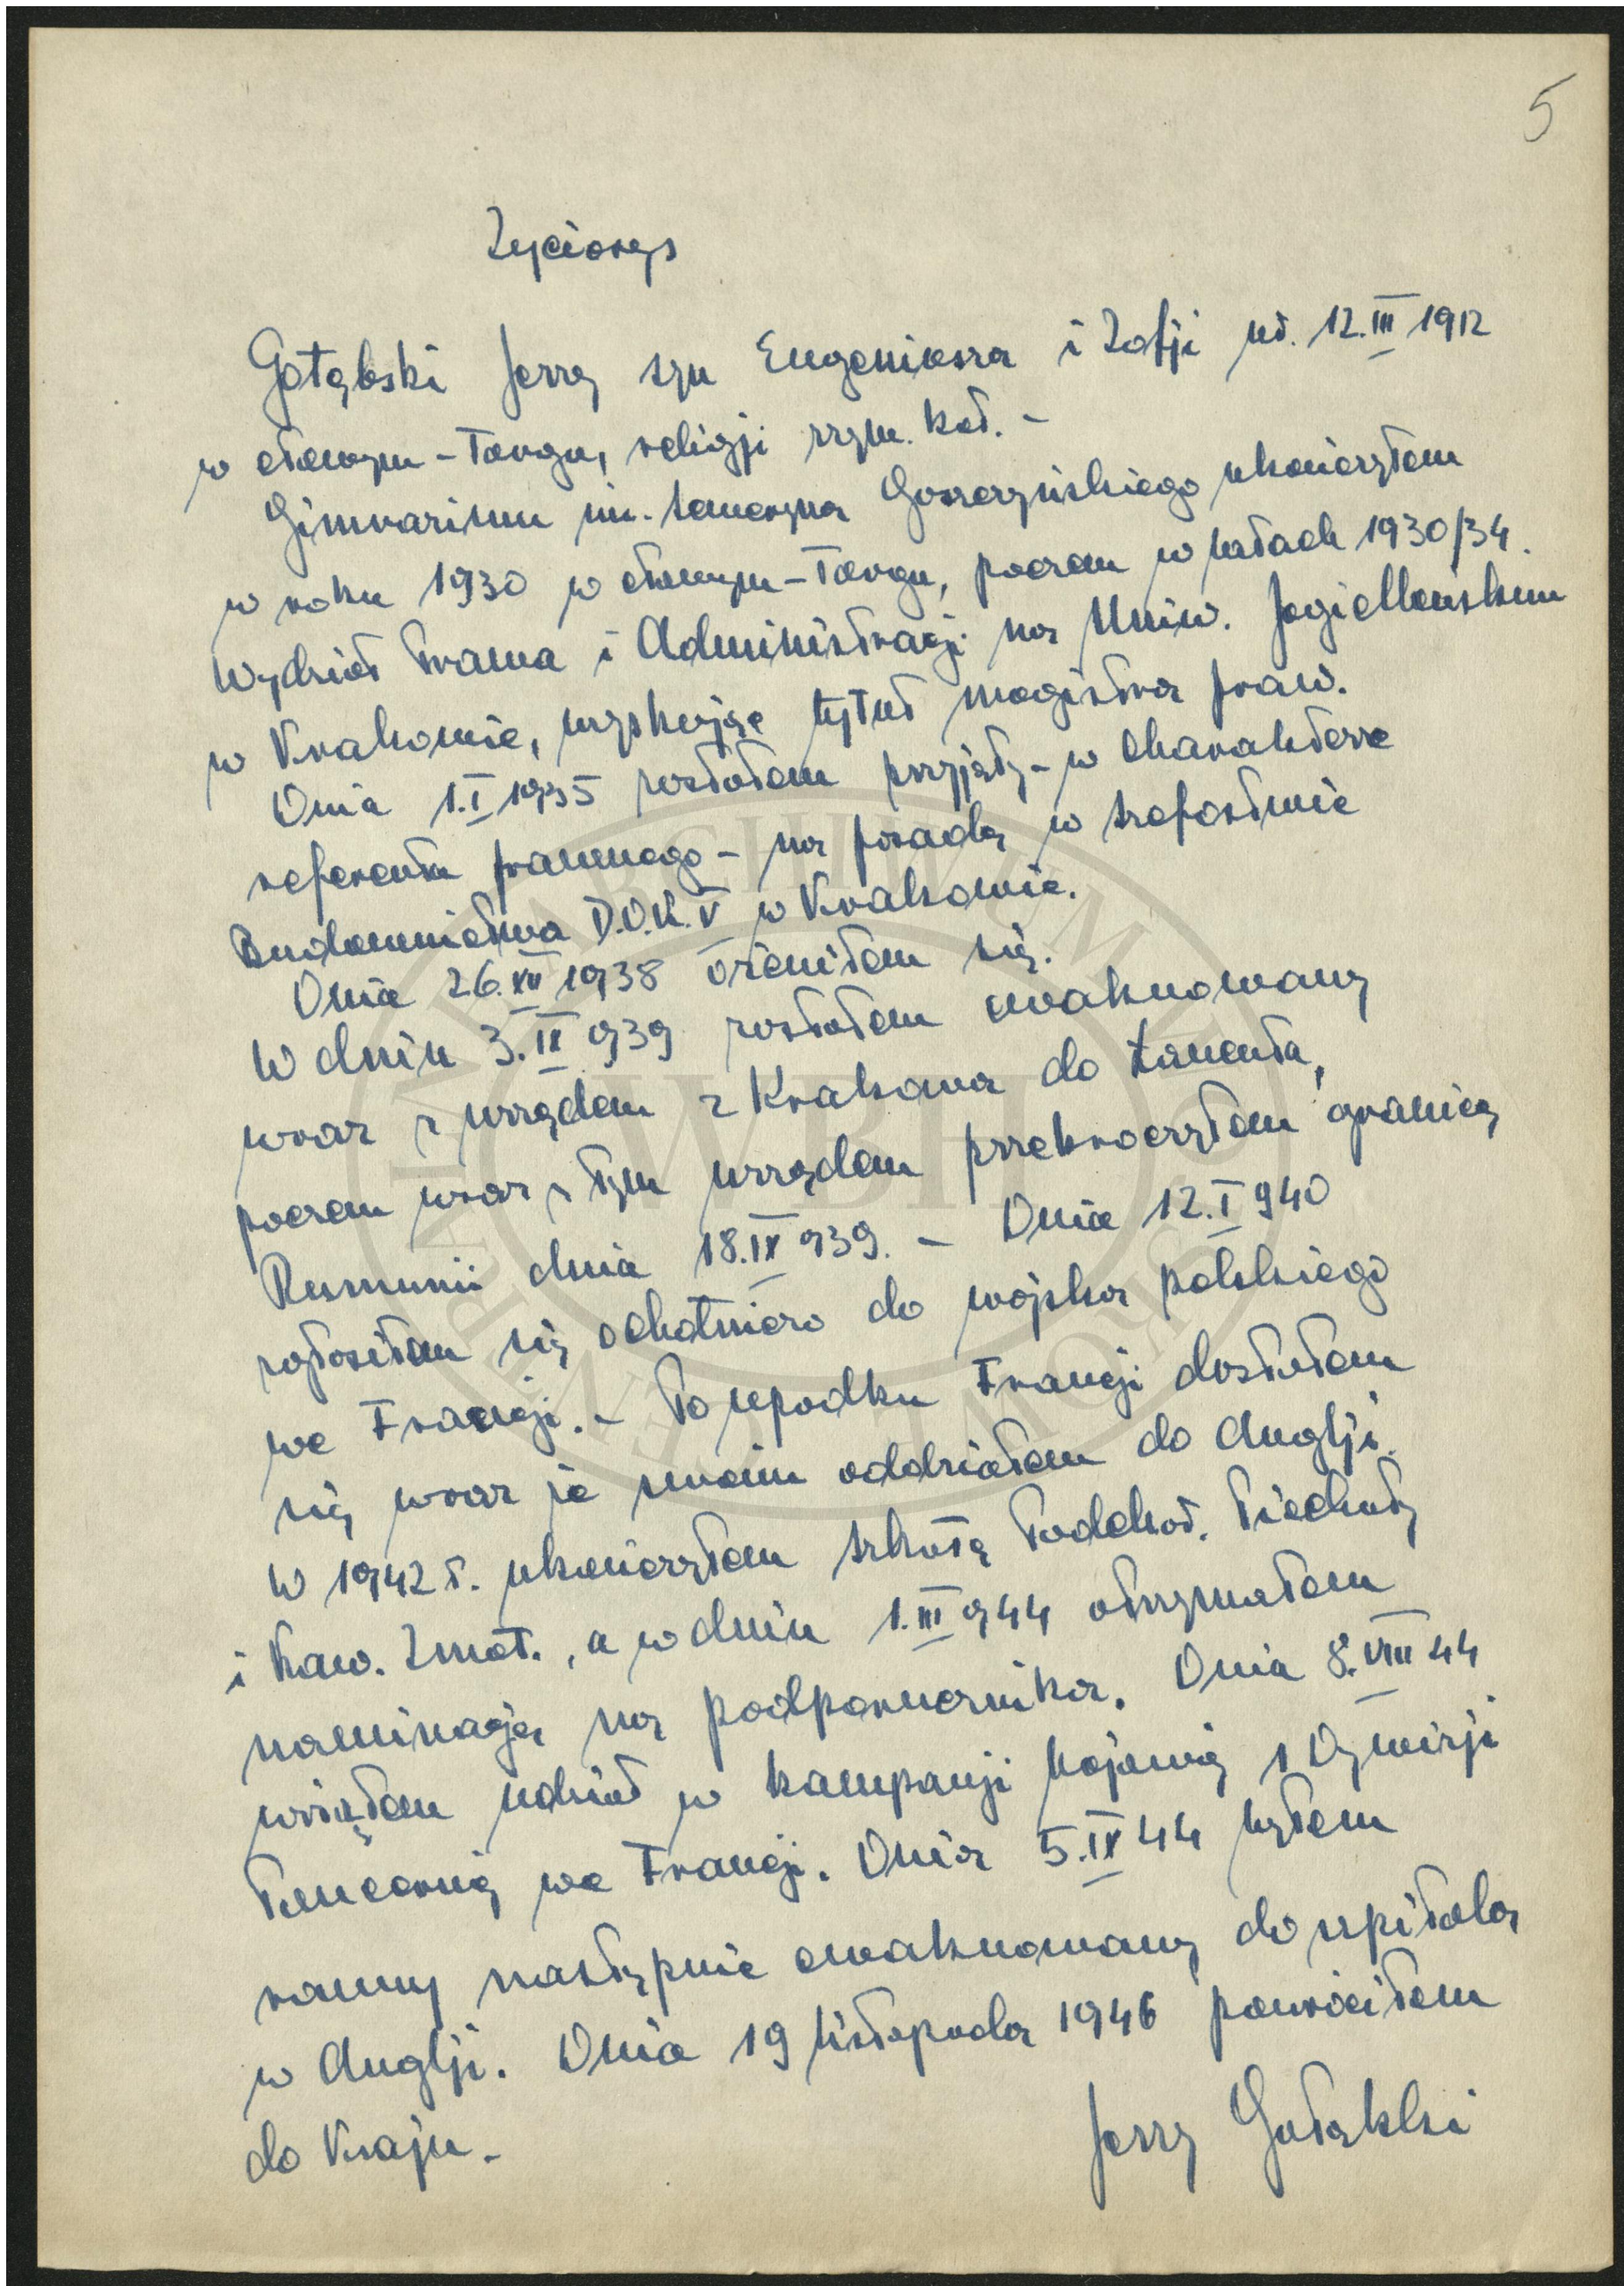 5
Życiorys
Gołąbski Jerzy syn Eugeniusza i Zofji ur. 12.III 1912
w Nowym-Targu, religji rzym. kat. -
Gimnazium im. Seweryna Goszczyńskiego ukończyłem
w roku 1930 w Nowym-Targu, poczem w latach 1930/34.
Wydział Prawa i Administracji na Uniw. Jagiellońskim
w Krakowie, uzyskując tytuł magistra praw.
Dnia 1.I 1935 zostałem przyjęty - w charakterze
referenta prawnego - na posadę w Szefostwie
Budownictwa D.O.K. V w Krakowie.
Dnia 26.XII 1938 ożeniłem się.
W dniu 3.IX 939 zostałem ewakuowany
wraz z urzędem z Krakowa do Łańcuta,
poczem wraz z tym urzędem przekroczyłem granicę
Rumunii dnia 18.IX 939. - Dnia 12.I 940
zgłosiłem się ochotniczo do wojska polskiego
we Francji. - Po upadku Francji dostałem
się wraz ze swoim oddziałem do Anglji.
W 1942 r. ukończyłem szkołę Podchor. Piechoty
i Kaw. Zmot., a w dniu 1.III 944 otrzymałem
nominację na podporucznika. Dnia 8.VIII 44
wziąłem udział w kampanji bojowej 1 Dywizji
Pancernej we Francji. Dnia 5.IX 44 byłem
ranny następnie ewakuowany do szpitala
w Anglji. Dnia 19 listopada 1946 powróciłem
do Kraju. -
Jerzy Gołąbski
WBH